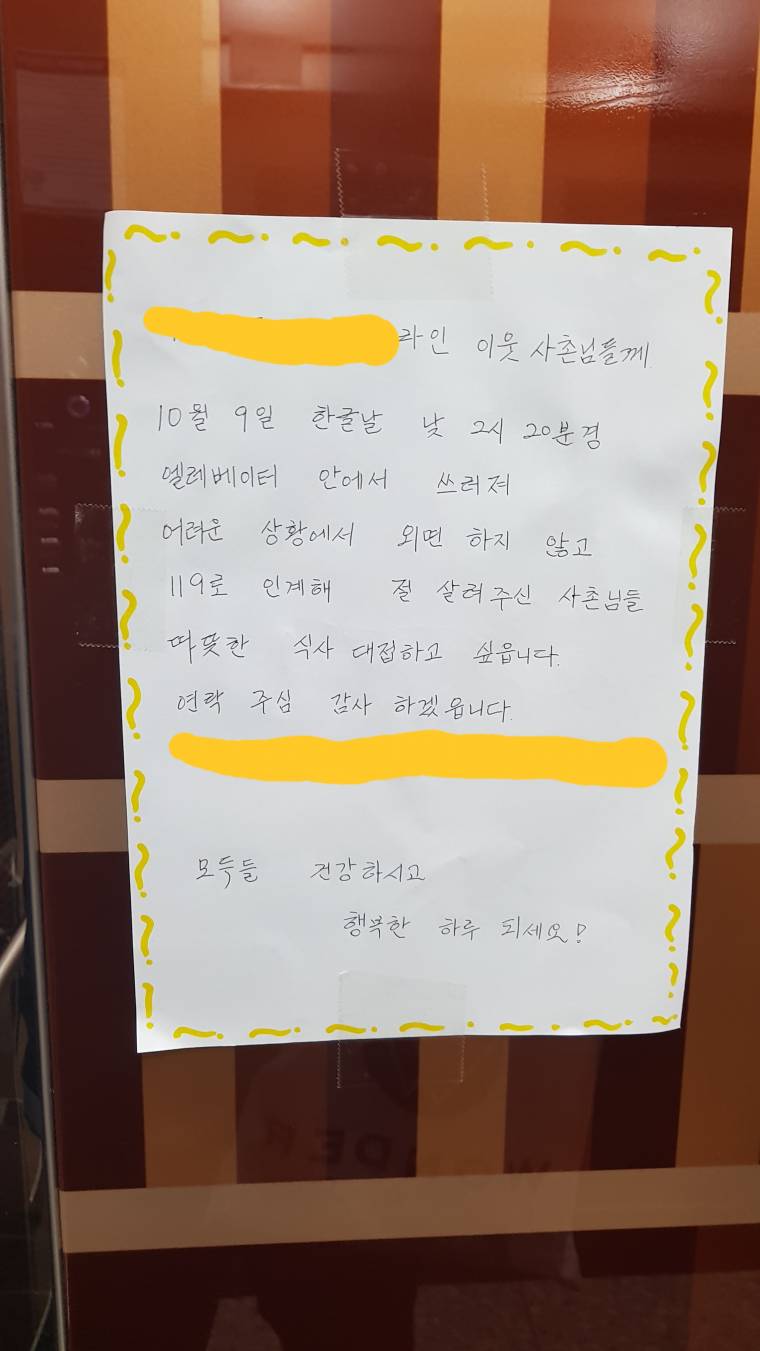 라인 이웃 사촌님들께
10월 9일 한글날 낮 2시 20분경
엘레베이터 안에서 쓰러져
어려운 상황에서 외면 하지 않고
119로 인계해 절 살려주신 사촌님들
따뜻한 식사 대접하고 싶읍니다.
연락 주심 감사 하겠읍니다.
모둑들 건강하시고
행복한 하루 되세요!
WONDER